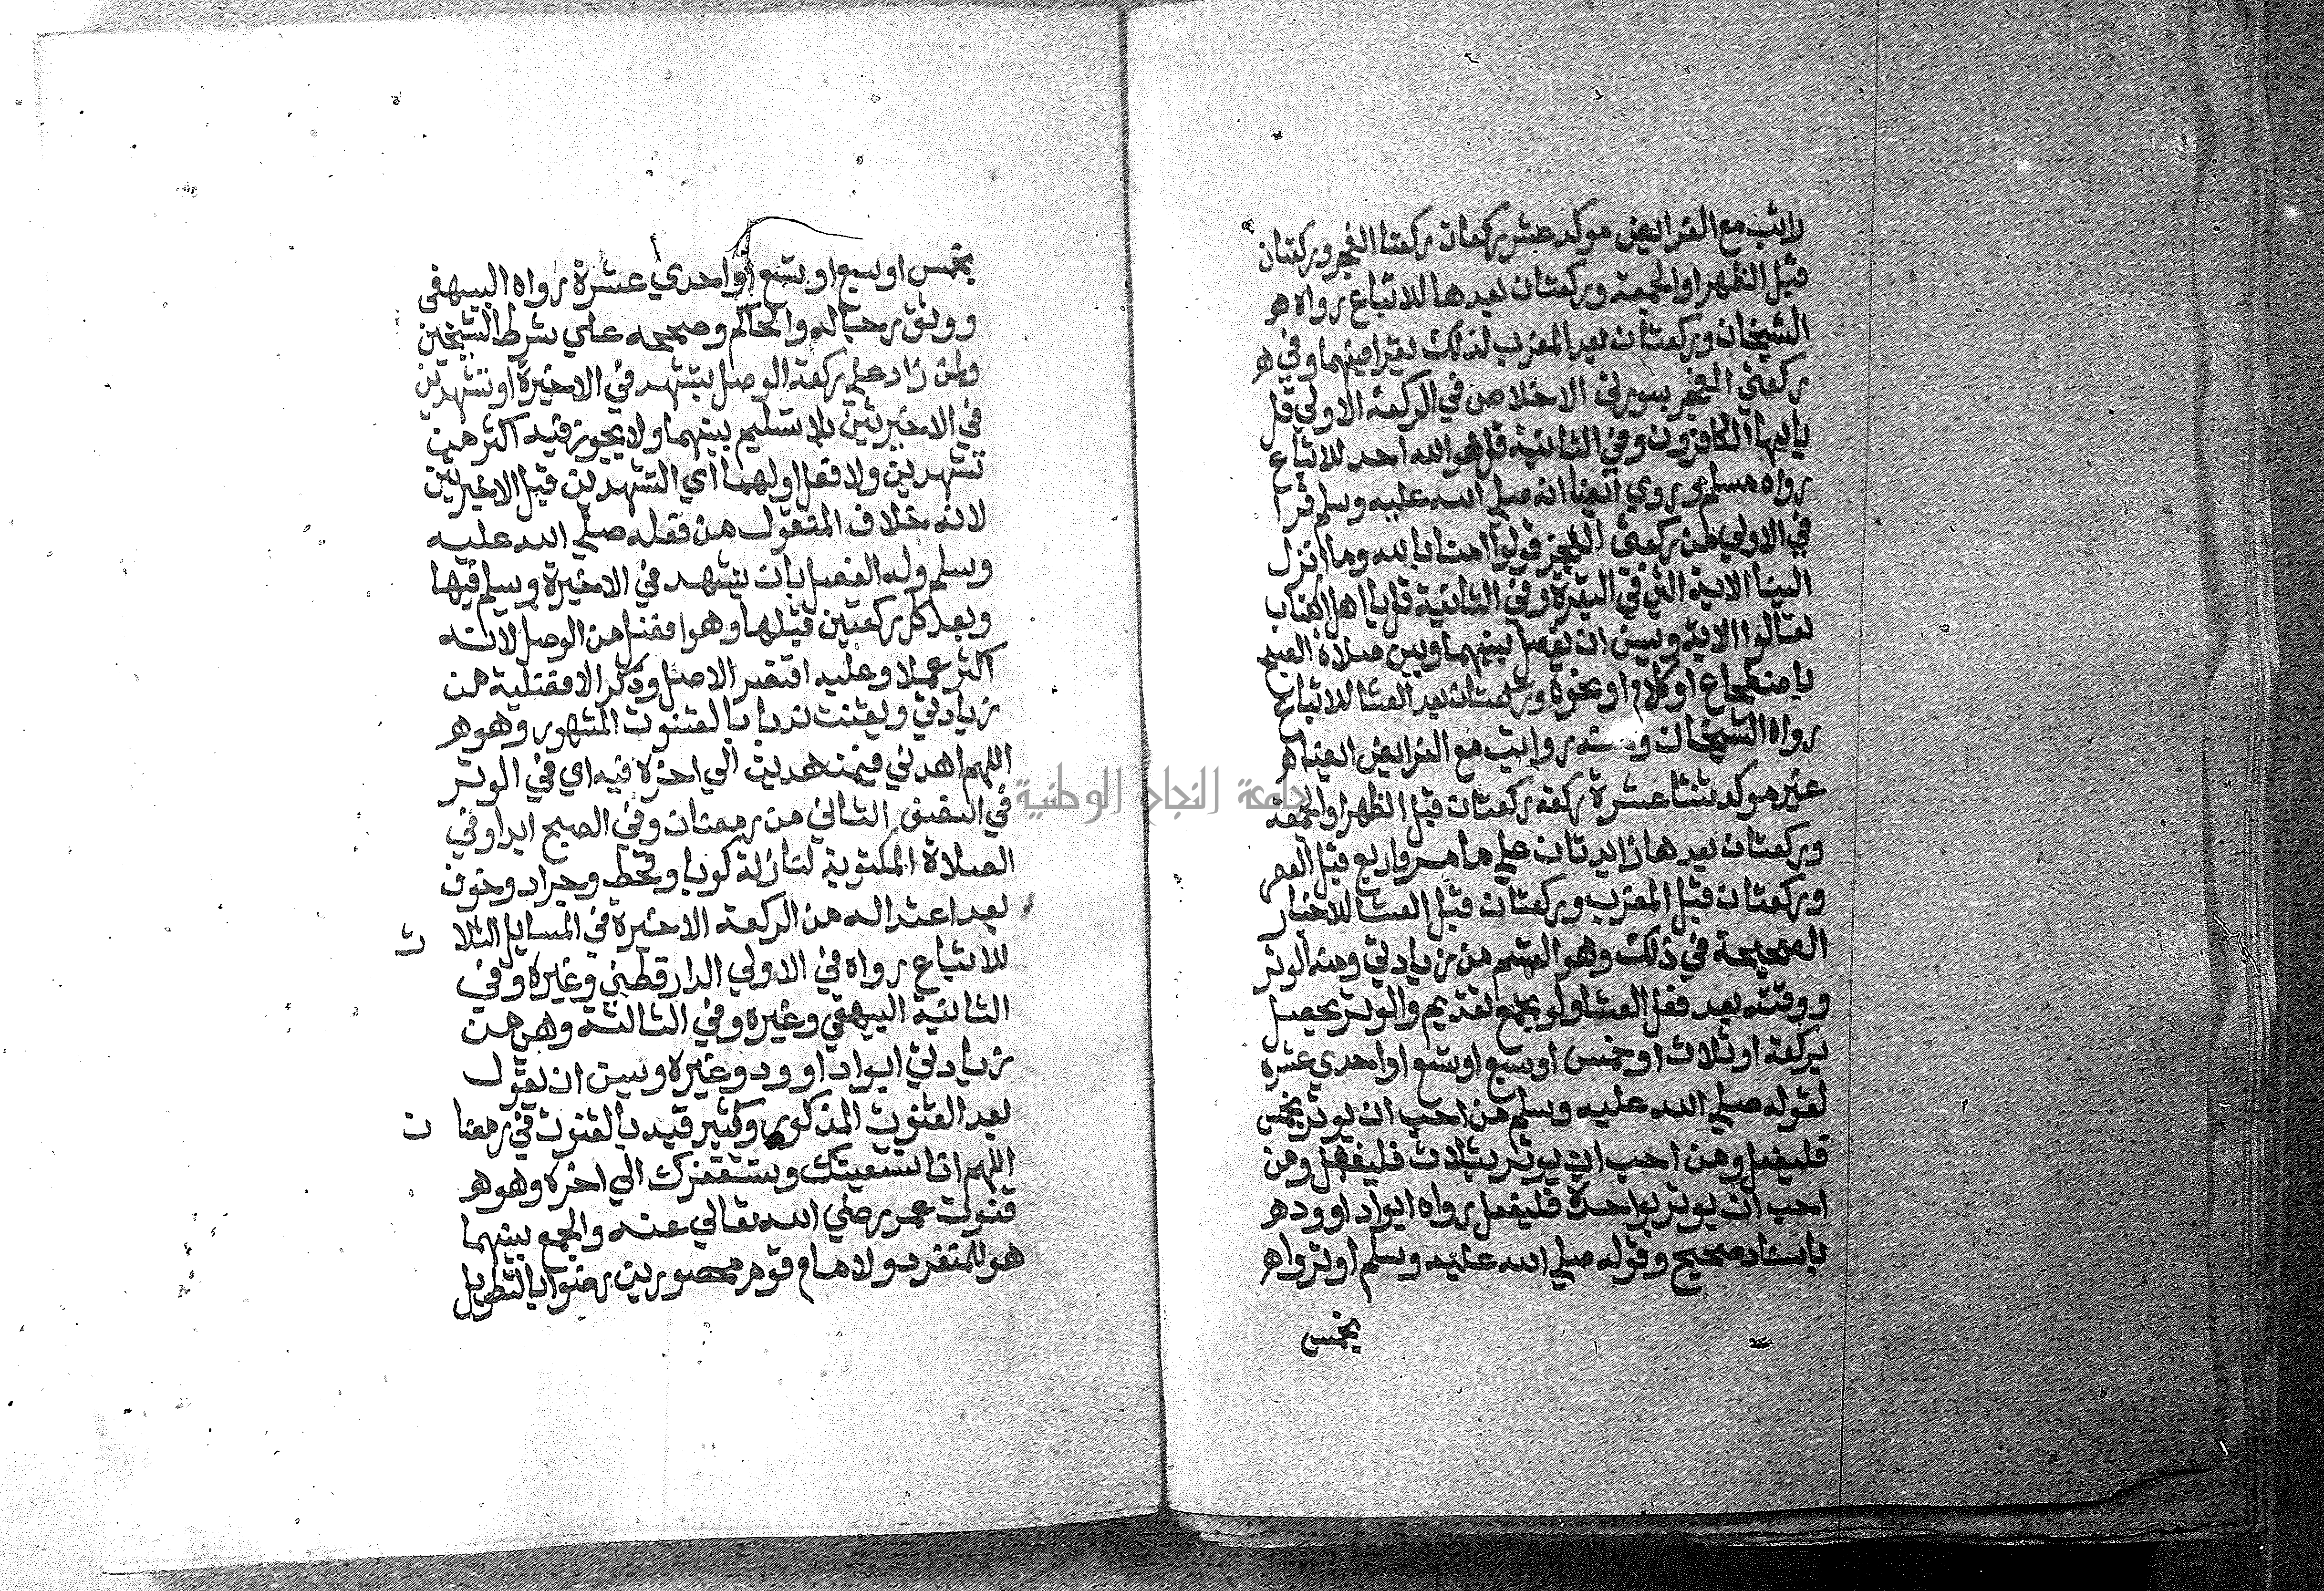 راتب مع الفرايض موكد عشر ركعات ركعتا الفجر وركعتان
قبل الظهر او الجمعة وركعتان بعدها للاتباع رواه ه
الشيخان وركعتان بعد المغرب لذلك يقرا فيهما وفي ه
ركعتي الفجر بسورتي الاخلاص في الركعة الاولي قل
ياايها الكافرون وفي الثانية قل هو الله احد للاتباع
رواه مسلم وروي ايضا انه صلي الله عليه وسلم قرا
في الاولي من ركعتي الفجر قولوا امنا بالله وما انزل
الينا الاية التي في البقرة وفي الثانية قل يا اهل الكتاب
تعالوا الاية ويسن ان يفصل بينهما وبين صلاة الصبح
باضطجاع او كلام او نحوه وركعتان بعد العشا للاتباع
رواه الشيخان ومنه رواتب مع الفرايض ايضا ه
غير موكد ثنتا عشرة ركعة ركعتان قبل الظهر او الجمعة
وركعتان بعدها زايدتان علي ما مر واربع قبل العصر
وركعتان قبل المغرب وركعتان قبل العشا للاخبار
الصحيحة في ذلك وهو القسم من زيادتي ومنه الوتر
ووقته بعد فعل العشا ولو بجمع تقديم والوتر يحصل
بركعة او ثلاث او خمس او سبع او تسع او احدي عشرة
لقوله صلي الله عليه وسلم من احب ان يوتر بخمس
فليفعل ومن احب ان يوتر بثلاث فليفعل ومن
احب ان يوتر بواحدة فليفعل رواه ابو داوود ه
باسناد صحيح وقوله صلي الله عليه وسلم اوتروا ه
بخمس
بخمس او سبع او تسع او احدي عشرة رواه البيهقي
ووثق رجاله والحاكم وصححه علي شرط الشيخين
ولمن زاد علي ركعة الوصل بتشهد في الاخيرة او تشهدين
في الاخيرتين بلا تسليم بينهما ولا يجوز فيه اكثر من
تشهدين ولا فعل اولهما اي التشهدين قبل الاخيرتين
لانه خلاف المنقول من فعله صلي الله عليه
وسلم وله الفصل بان يتشهد في الاخيرة ويسلم فيها
وبعد كل ركعتين قبلها وهو افضل من الوصل لانه
اكثر عملا وعليه اقتصر الاصل وذكر الافضلية من
زيادتي ويقنت ندبا بالقنوت المشهور وهو ه
اللهم اهدني فيمن هديت الي اخره فيه اي في الوتر
في النصف الثاني من رمضان وفي الصبح ابدا وفي
الصلاة المكتوبة لنازلة كوبا وقحط وجراد وخوف
بعد اعتداله من الركعة الاخيرة في المسايل الثلاث
للاتباع رواه في الاولي الدارقطني وغيره وفي
الثانية البيهقي وغيره وفي الثالثة وهي من
زيادتي ابو داوود وغيره ويسن ان يقول
بعد القنوت المذكور وكثير قيد بالقنوت في رمضان
اللهم انا نستعينك ونستغفرك الي اخره وهو ه
قنوت عمر رضي الله تعالي عنه والجمع بينهما
هو للمنفرد ولامام قوم محصورين رضوا بالتطويل
جامعة النجاح الوطنية